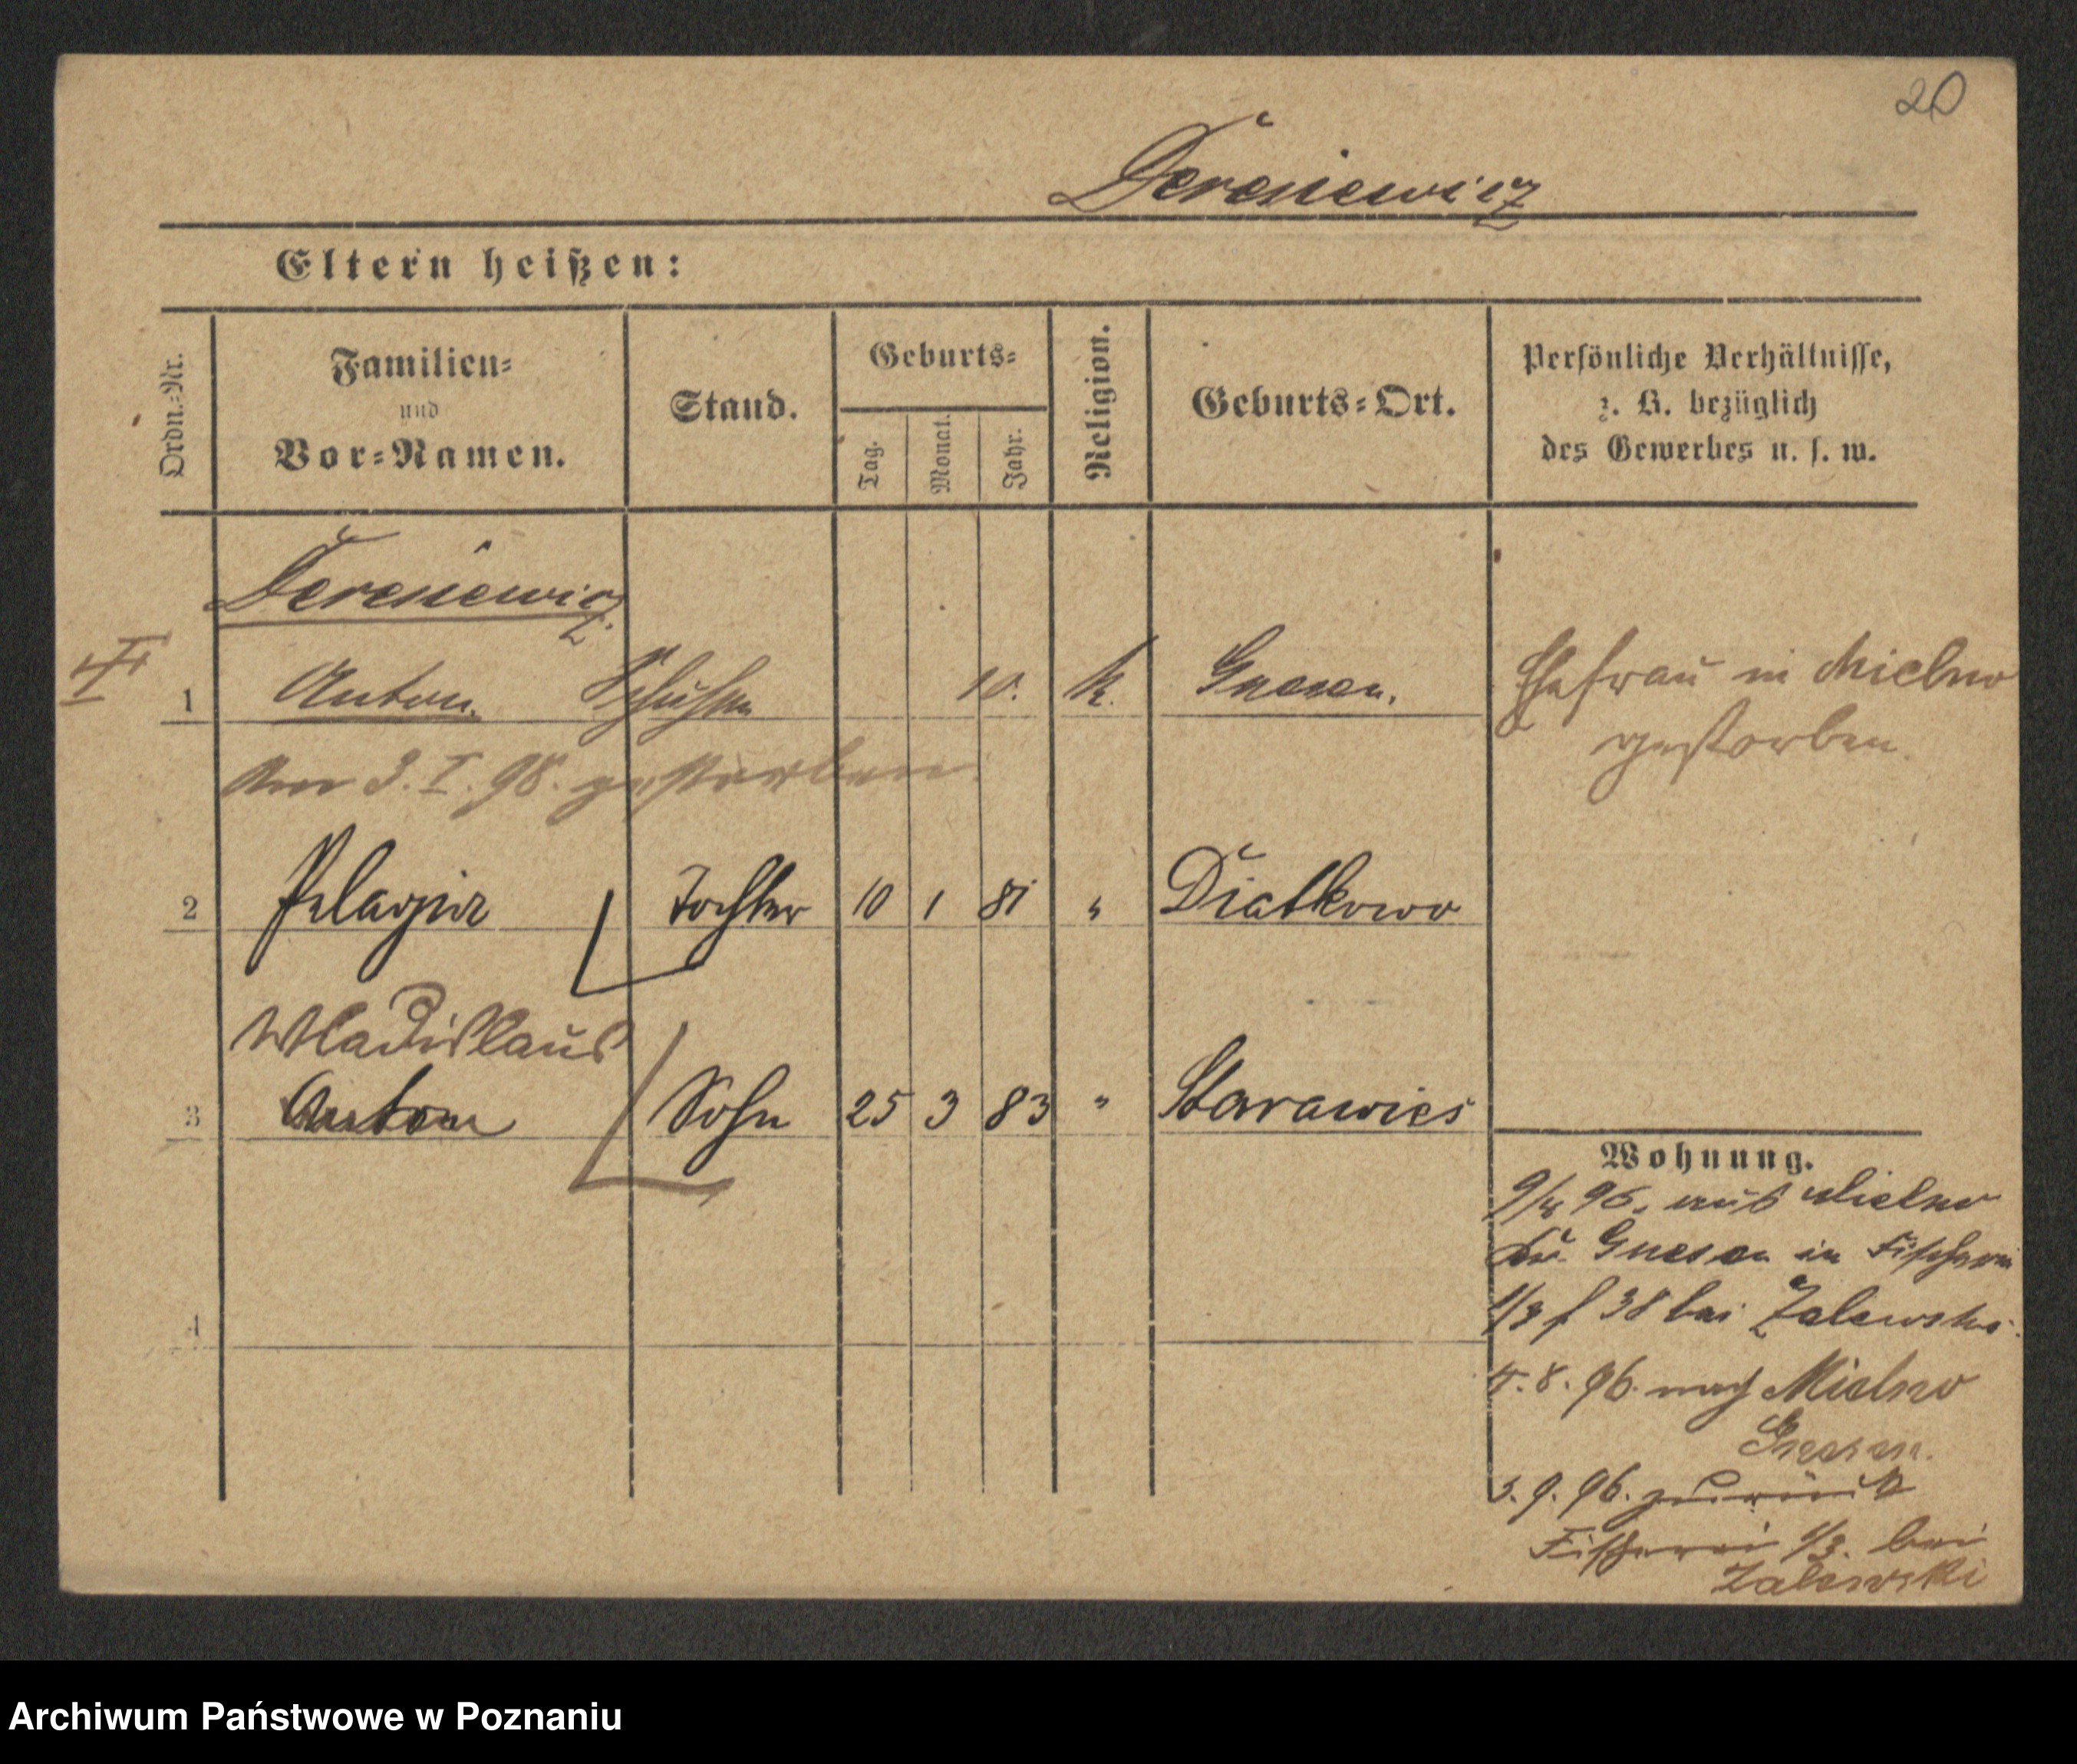 20
Dereniewicz
Eltern heißen:
Ordn.-Nr.
Familien-
und
Vor-Namen.
Stand.
Geburts-
Tag.
Monat.
Jahr.
Religion.
Geburts-Ort.
Persönliche Verhältnisse,
z. B. bezüglich
des Gewerbes u. s. w.
Dereniewicz
1 Anton. 10. k. Gnesen. Ehefrau in Mielno
gestorben.
Am 3. I. 98. gestorben.
2 Pelagia Tochter 10 1 81 " Diatkowo
Wladislaus
3 Anton Sohn 25 3 83 " Starawies
4
Wohnung.
9/4 96. aus Mielno
Gnesen in Fischerei
1/3 f 38 bei Zalewski.
4. 8. 96. nach Mielno
Gnesen.
3. 9. 96. zurück
Fischerei 1/3. bei
Zalewski
Archiwum Państwowe w Poznaniu